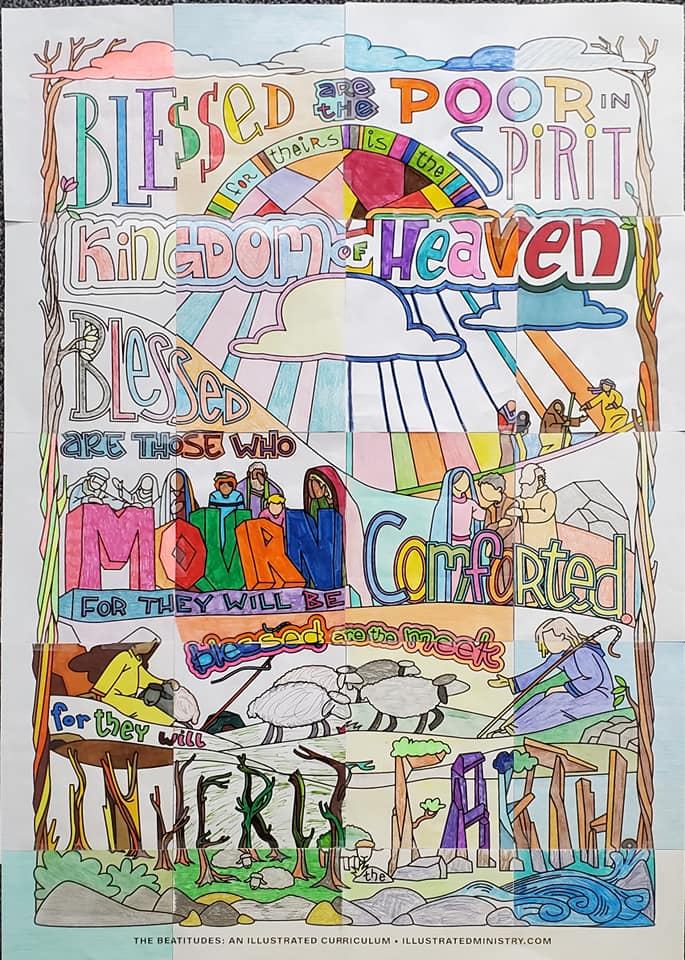 BLESSED are the POOR IN
SPIRIT
for theirs is the
KINGDOM OF HEAVEN
BLESSED
ARE THOSE WHO
MOURN
FOR THEY WILL BE
Comforted.
blessed are the meek
for they will
INHERIT
the
EARTH
THE BEATITUDES: AN ILLUSTRATED CURRICULUM • ILLUSTRATEDMINISTRY.COM